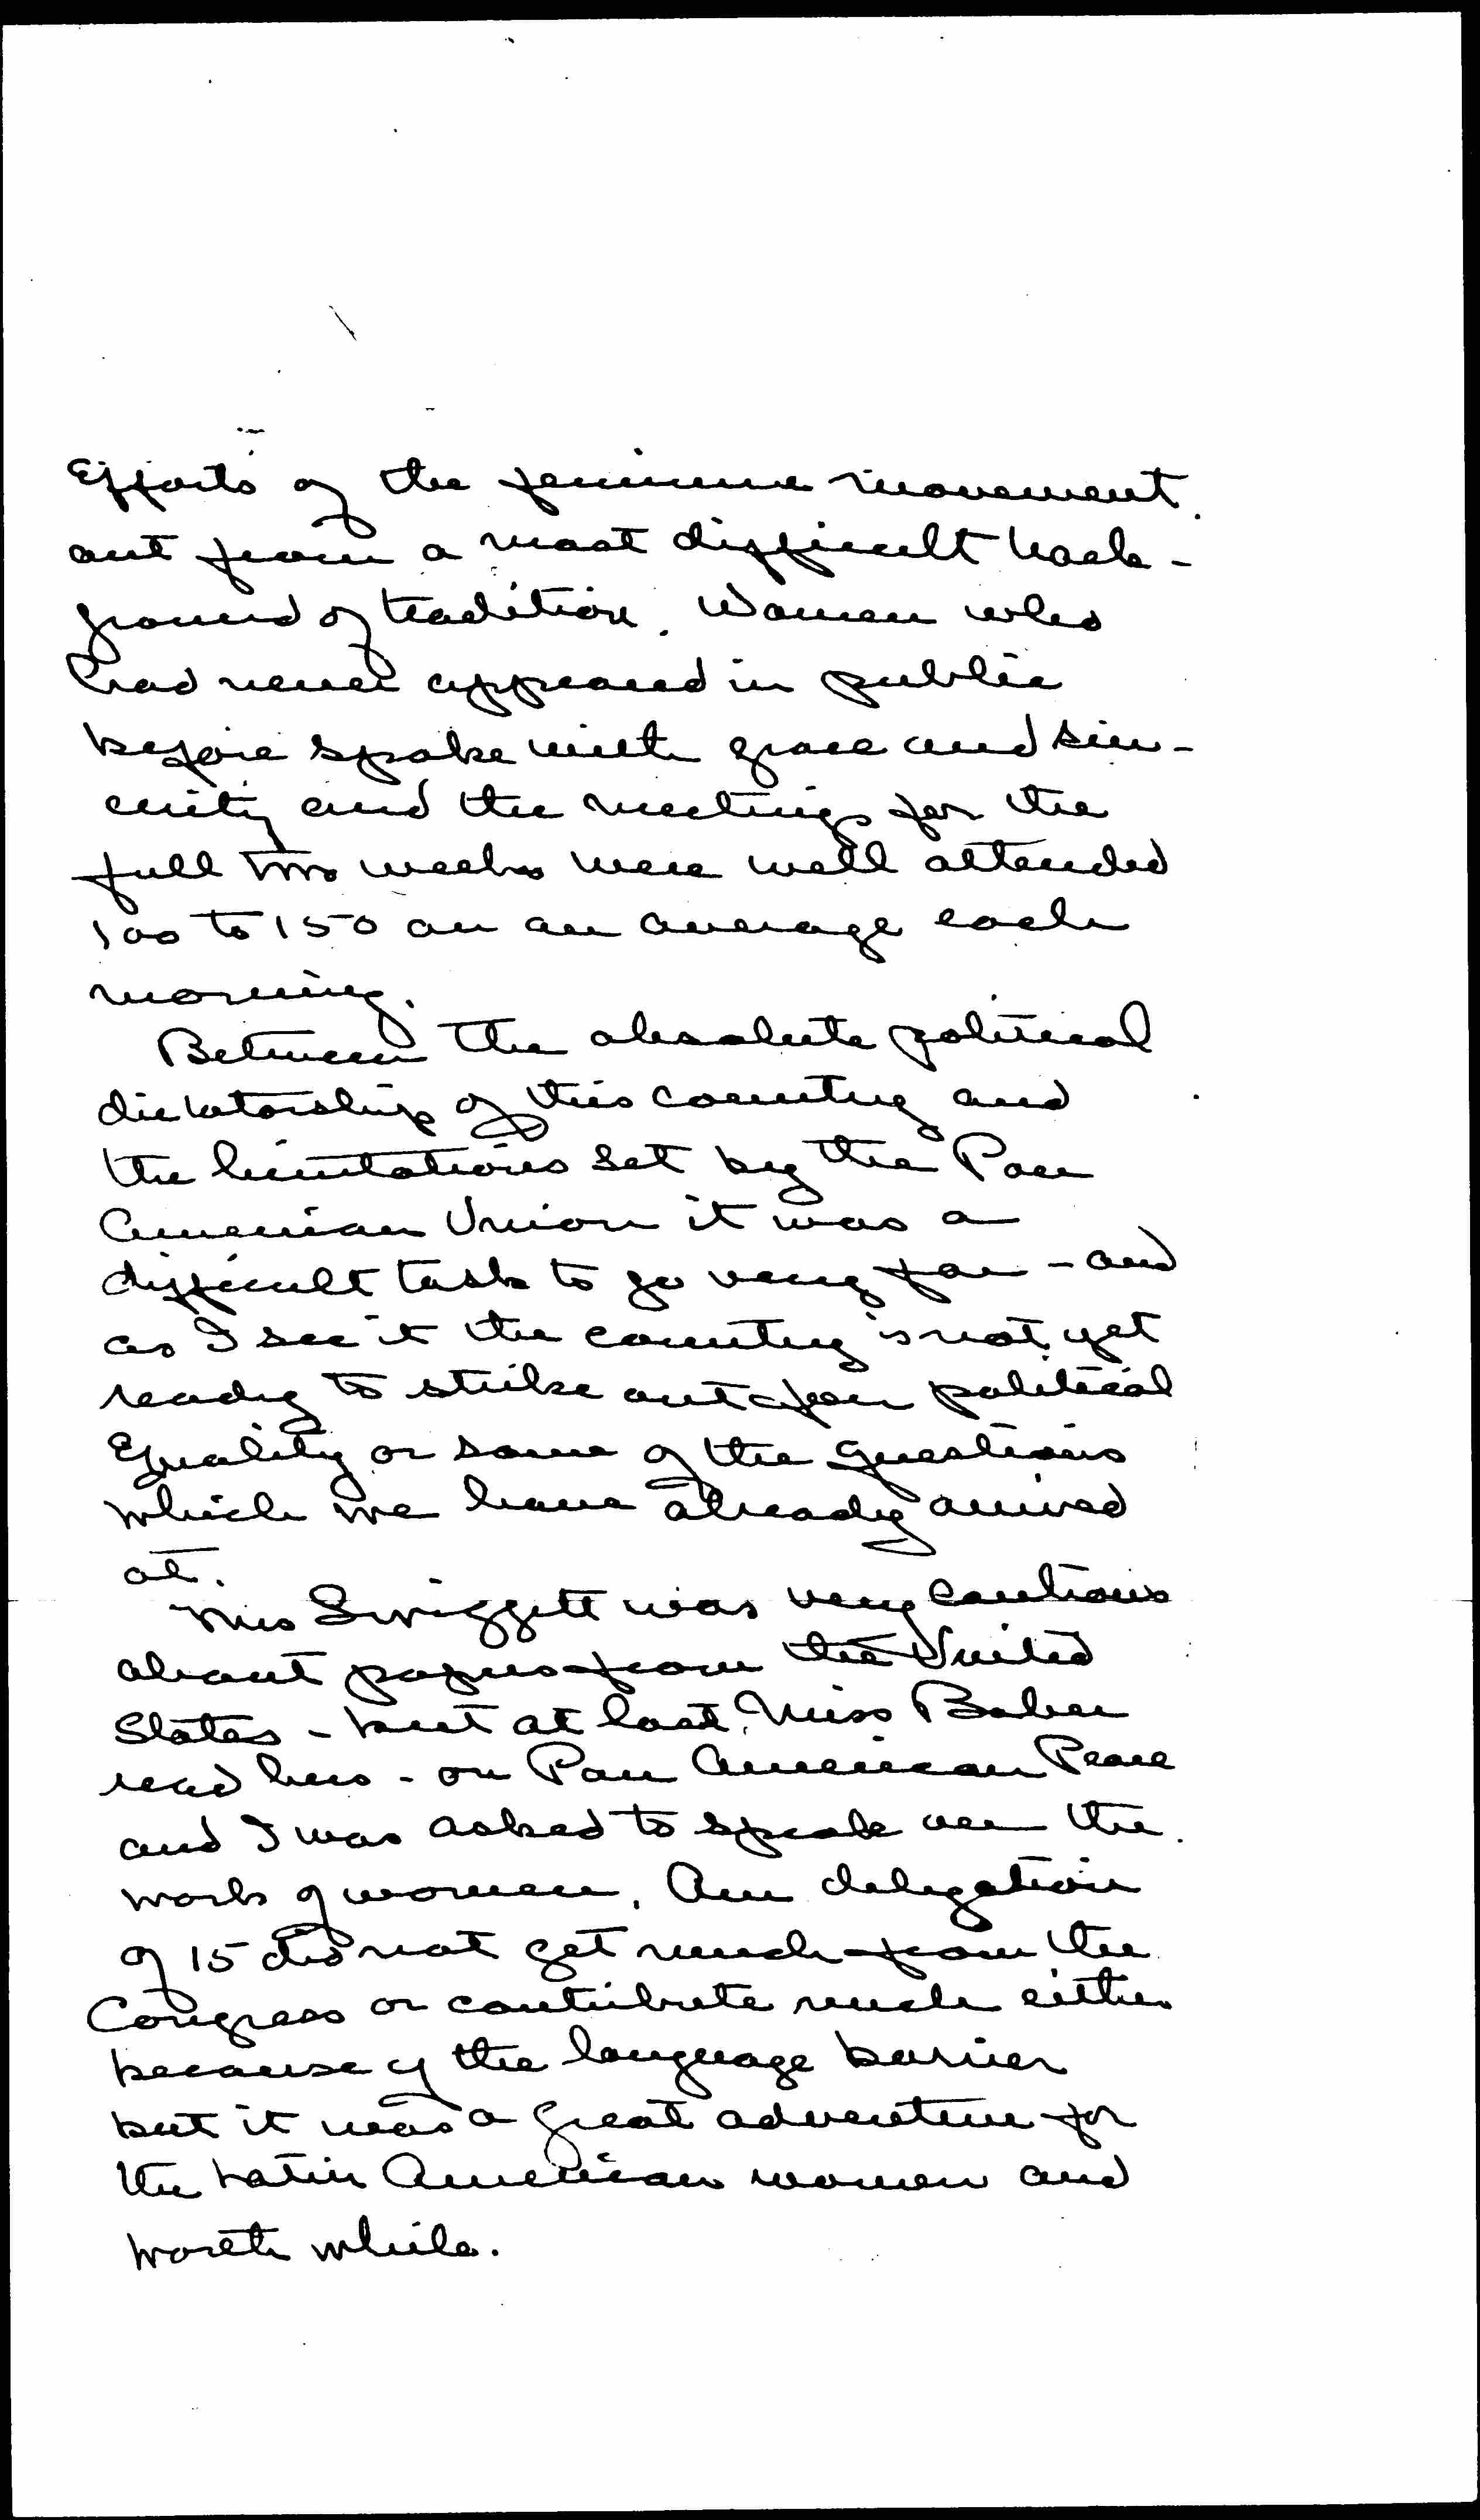 Efforts of the feminine movement
out from a most difficult back-
ground of tradition. Women who
had never appeared in public
before spoke with grace and sin-
cerity and the meetings for the
full two weeks were well attended
100 to 150 on an average each
morning.
Between the absolute political
dictatorship of this country and
the limitations set by the Pan
American Union it was a
difficult task to go very far - and
as I see it the country is not yet
ready to strike out for political
Equality or some of the questions
which we have already arrived
at.
Mrs Swiggett was very cautious
about papers from the United
States - but at last Miss Baber
read hers - on Pan American Peace
and I was asked to speak on the
work of women. Our delegation
of 15 did not get much from the
Congress or contribute much either
because of the language barrier
but it was a great adventure for
the Latin American women and
worth while.